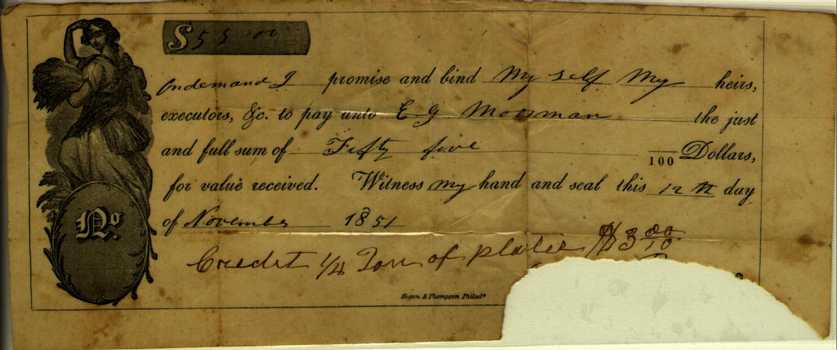 $55 00
On demand I promise and bind my self my heirs,
executors, &c. to pay unto E G Mosman the just
and full sum of Fifty five /100 Dollars,
for value received. Witness my hand and seal this 12th day
No. of November 1851
Credit 1/4 Ton of plates $3 00/10